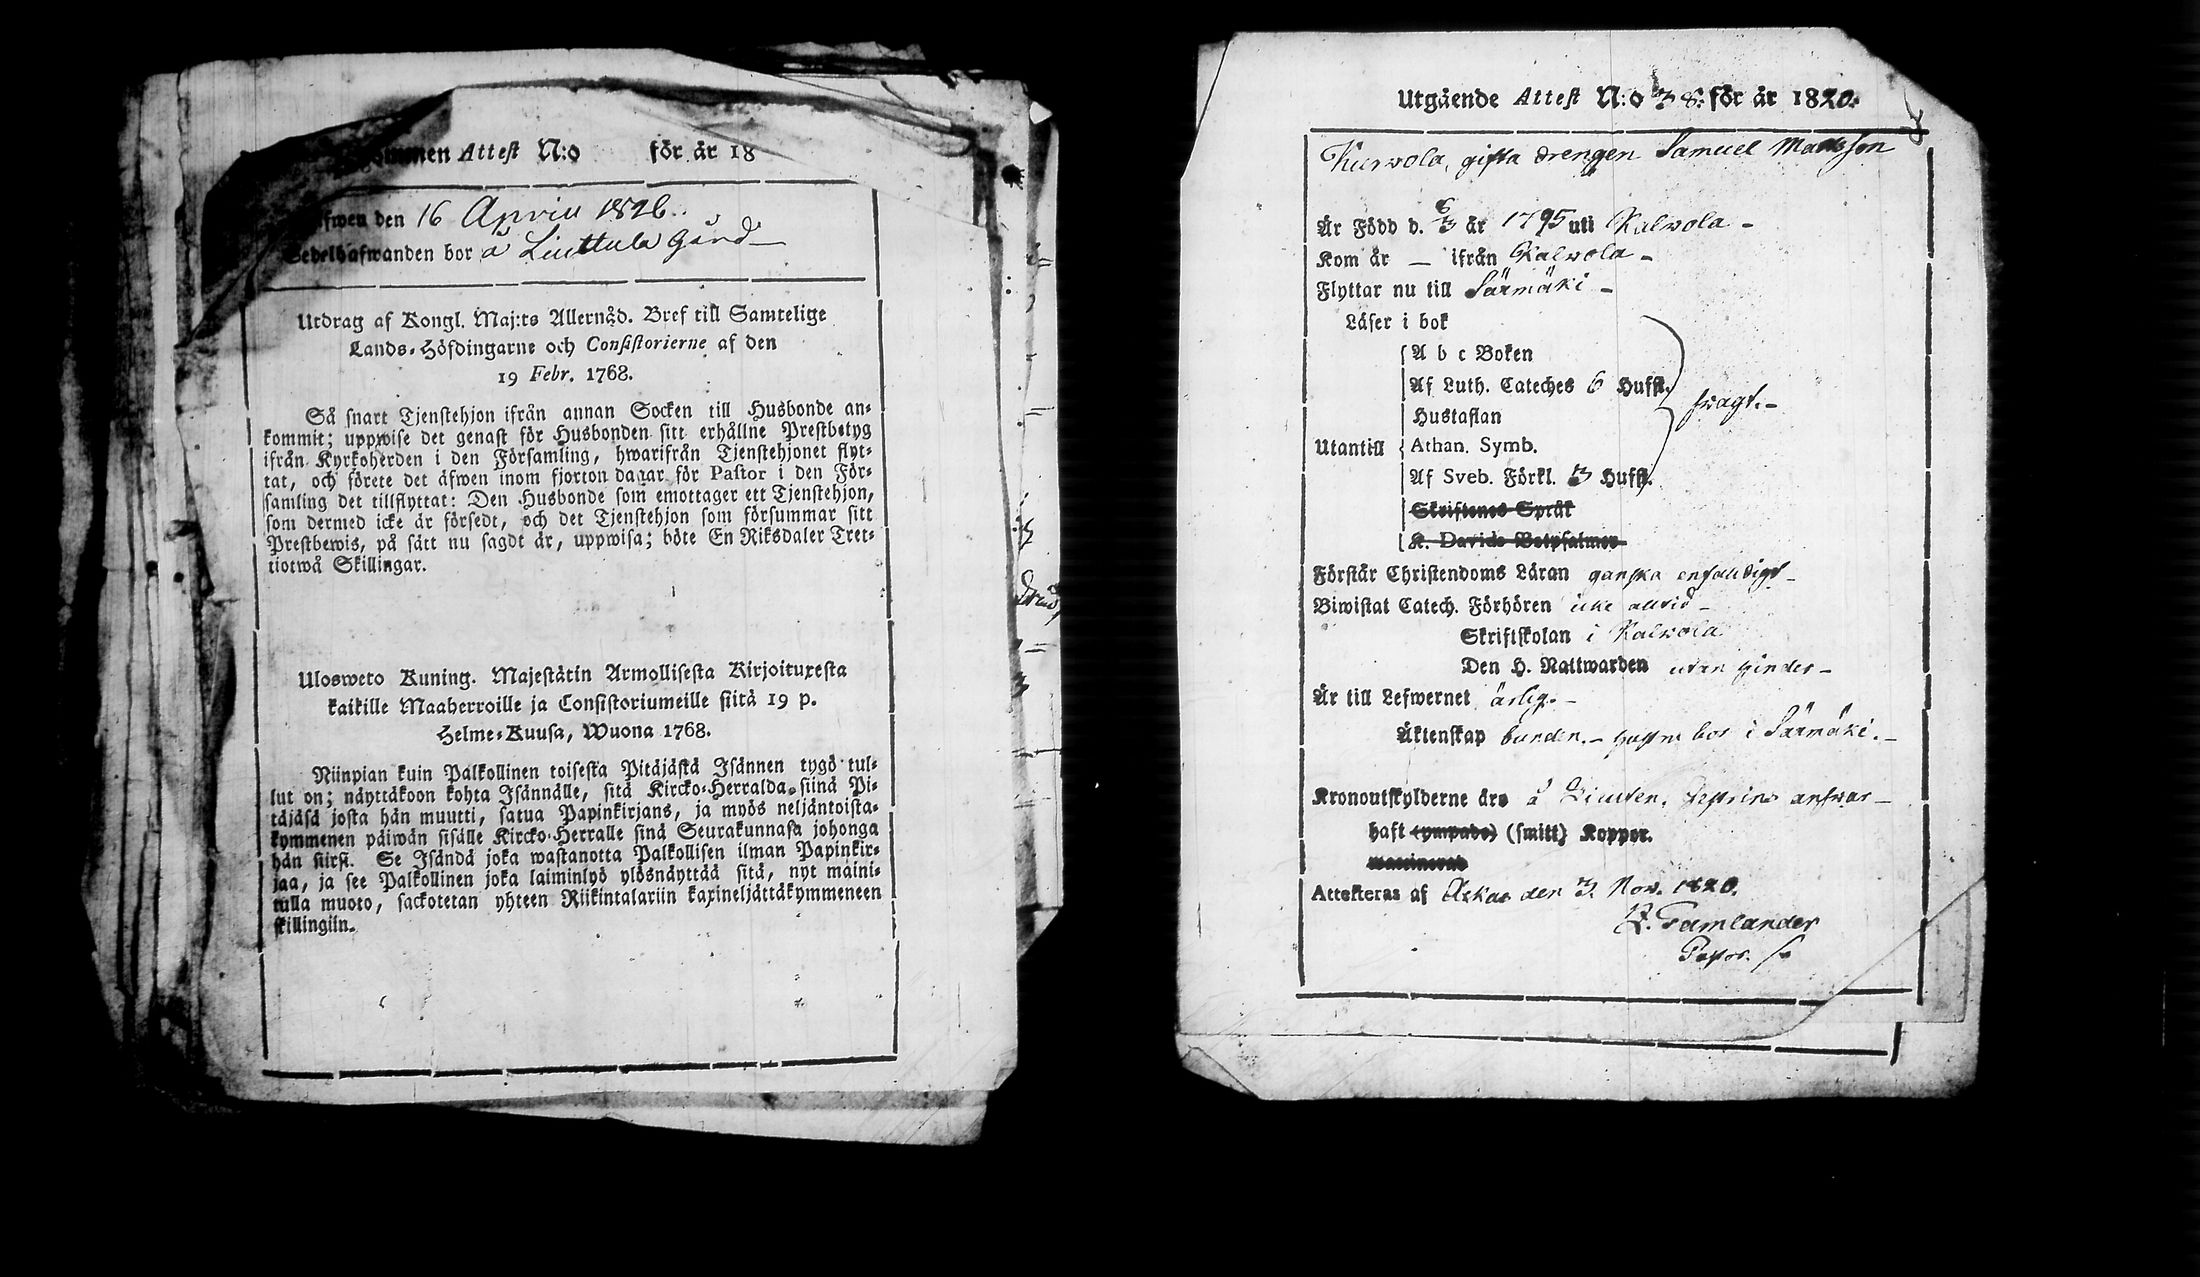 kommen Attest N:o för år 18
ifwen den 16 Aprill 1826.
Sedelhafwanden bor å Liuttula gård
Utdrag af Kongl. Maj:ts Allernåd. Bref till Samtelige
Lands-Höfdingarne och Consistorierne af den
19 Febr. 1768.
Så snart Tjenstehjon ifrån annan Socken till Husbonde an-
kommit; uppwise det genast för Husbonden sitt erhållne Prestbetyg
ifrån Kyrkoherden i den Församling, hwarifrån Tjenstehjonet flyt-
tat, och förete det äfwen inom fjorton dagar för Pastor i den För-
samling det tillflyttat: Den Husbonde som emottager ett Tjenstehjon,
som dermed icke är försedt, och det Tjenstehjon som försummar sitt
Prestbewis, på sätt nu sagdt är, uppwisa; böte En Riksdaler Tret-
tiotwå Skillingar.
Ulosweto Kuning. Majestätin Armollisesta Kirjoituxesta
kaikille Maaherroille ja Consistoriumeille siitä 19 p.
Helme-Kuusa, Wuona 1768.
Niinpian kuin Palkollinen toisesta Pitäjästä Isännen tygö tul-
lut on; näyttäkoon kohta Isännälle, sitä Kircko-Herralda siinä Pi-
täjäsä josta hän muutti, saatua Papinkirjans, ja myös neljäntoista-
kymmenen päiwän sisälle Kircko-Herralle sinä Seurakunnasa johonga
hän siirsi. Se Isändä joka wastanotta Palkollisen ilman Papinkir-
jaa, ja see Palkollinen joka laiminlyö ylösnäyttää sitä, nyt maini-
tulla muoto, sackotetan yhteen Riikintalariin kaxineljättäkymmeneen
skillingiin.
Utgående Attest N:o 38. för år 1820.
Kurwola, gifta drengen Samuel Mattsson
Är Född d. 6/3 år 1795 uti Kalwola -
Kom år — ifrån Kalwola -
Flyttar nu till Särmäki -
Läser i bok
A b c Boken
Af Luth. Cateches 6 Hufst.
swagt. -
Hustaflan
Utantill Athan. Symb.
Af Sveb. Förkl. 3 Hufst.
Skriftenes Språk
K. Davids Botpsalmer
Förstår Christendoms Läran ganska enfaldigt -
Biwistat Catech. Förhören icke alltid -
Skriftskolan i Kalwola
Den H. Nattwarden utan hinder -
Är till Lefwernet ärlig. -
Äktenskap bunden. - hustru bor i Särmäki. -
Kronoutskylderne äro å answar -
haft (ympade) (smitt) Koppor.
waccinerad
Attesteras af Askas den 3 Nov. 1820.
Tamlander
Pastor.